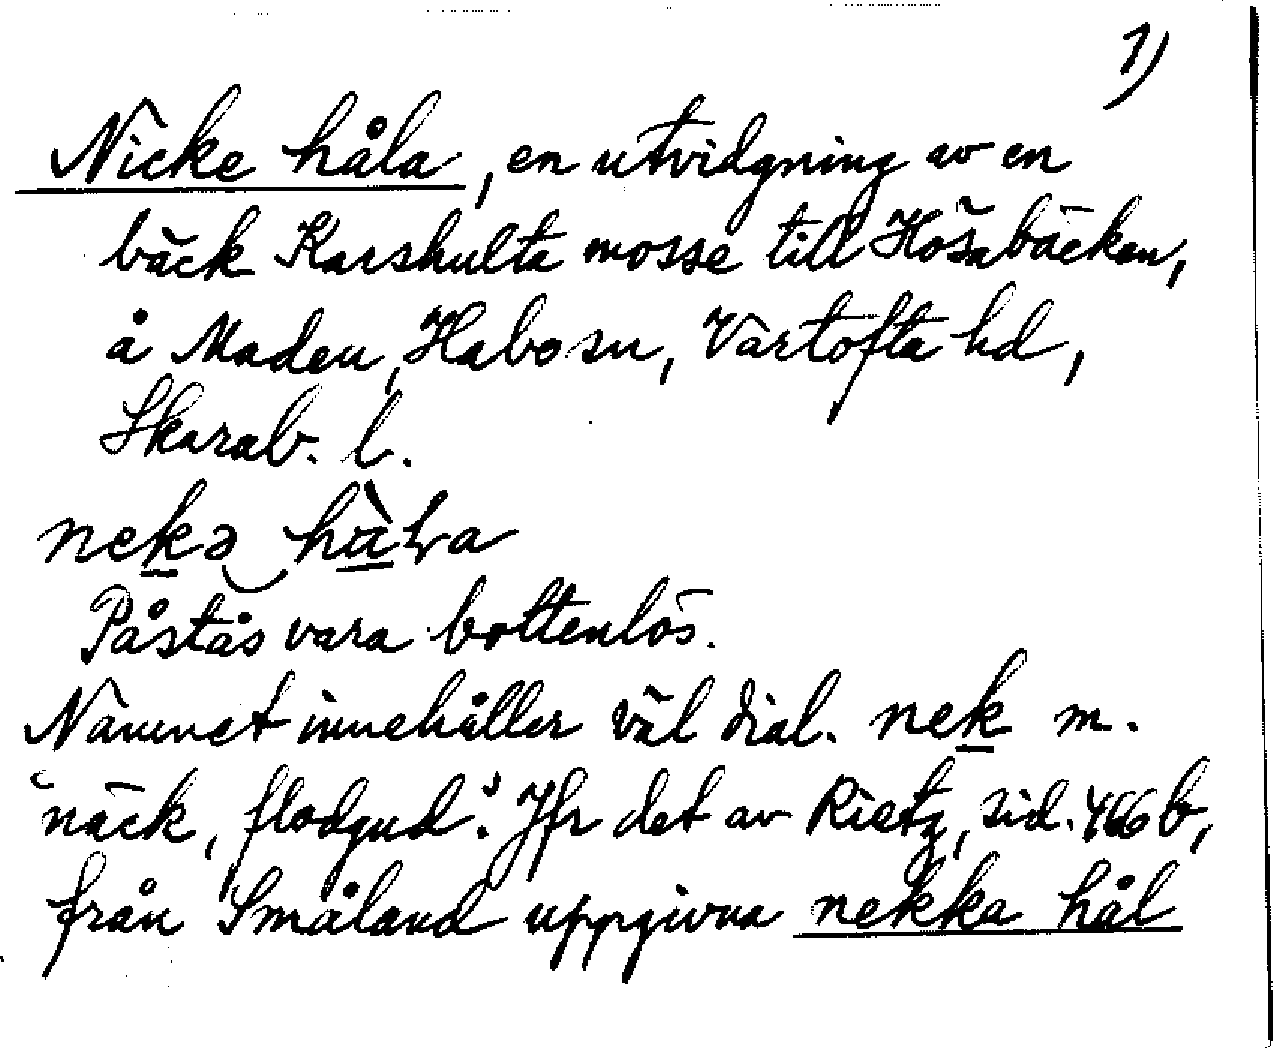 1)
Nicke håla, en utvidgning av en
bäck Karshulta mosse till Hösabäcken,
å Maden, Habo sn, Vartofta hd,
Skarab. l.
nekə hàLa
Påstås vara bottenlös.
Namnet innehåller väl dial. nek m.
'näck, flodgud'. Jfr det av Rietz, sid. 466 b,
från Småland uppgivna nekka hål